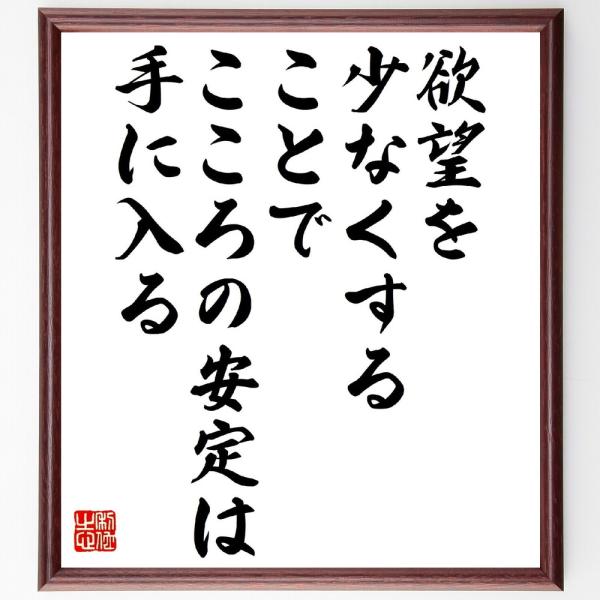 欲望を
少なくする
ことで
こころの安定は
手に入る